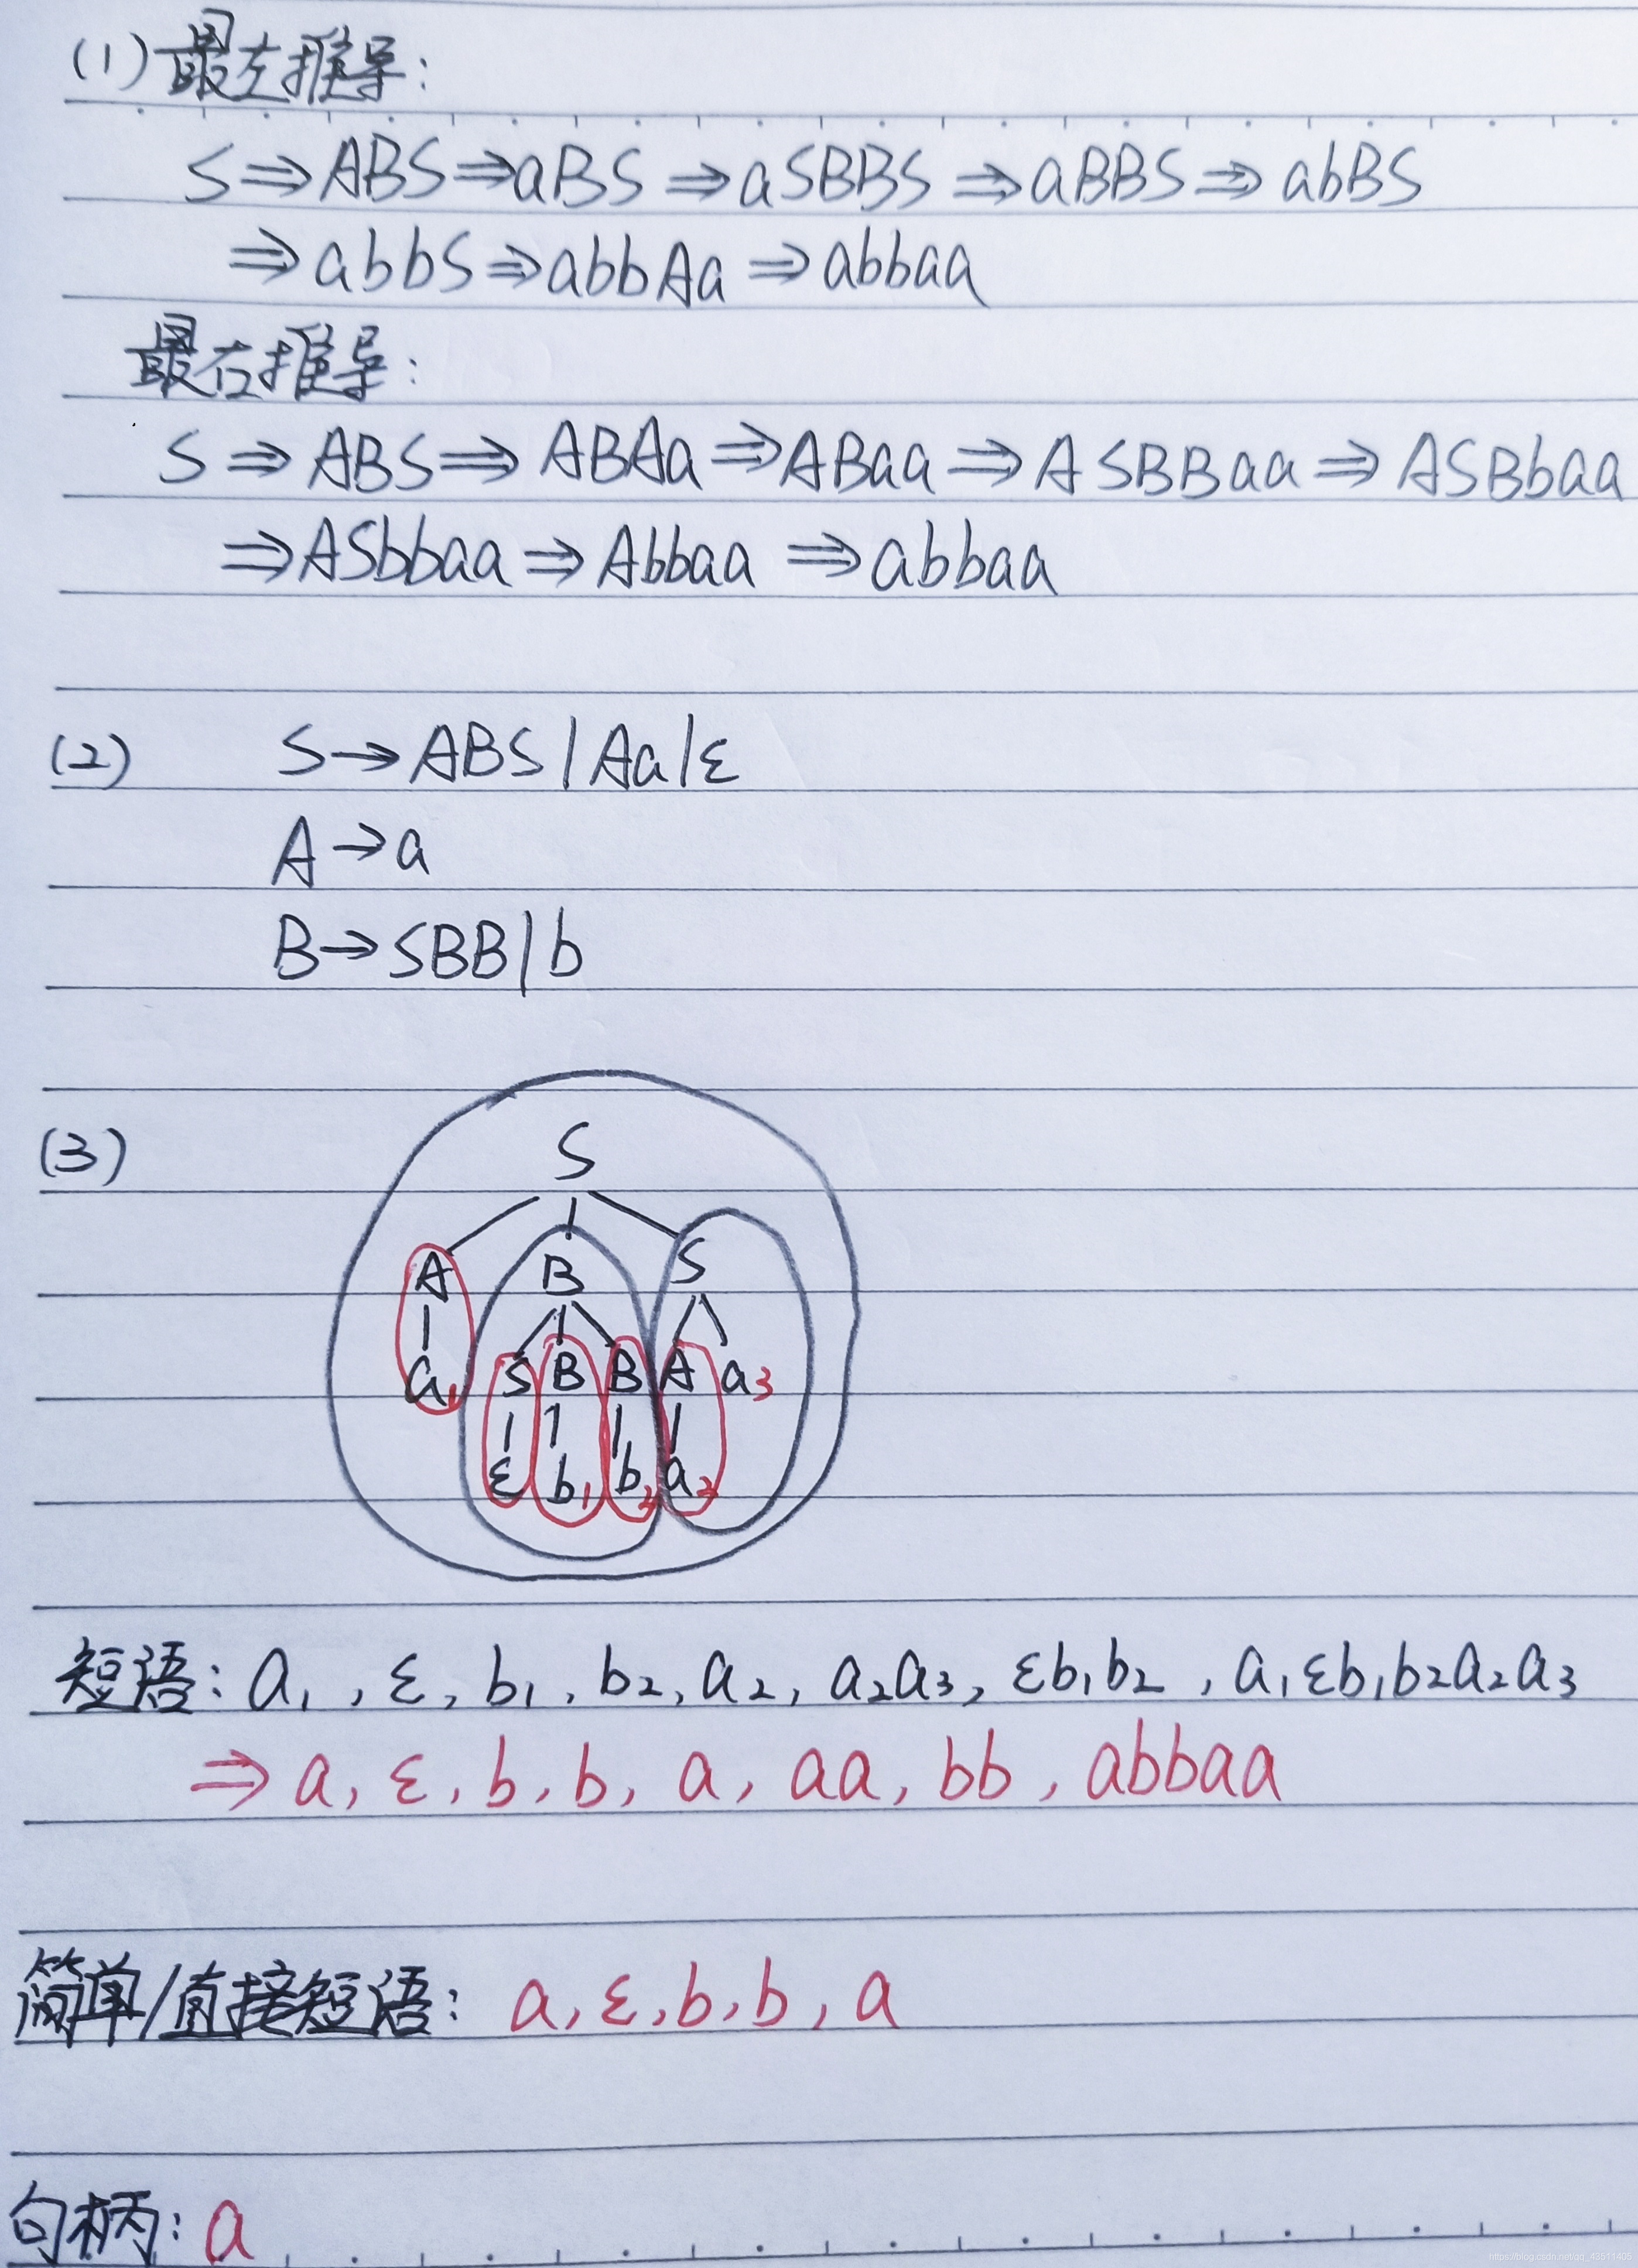 (1) 最左推导:
S⇒ABS⇒aBS⇒aSBBS⇒aBBS⇒abBS
⇒abbS⇒abbAa⇒abbaa
最右推导:
S⇒ABS⇒ABAa⇒ABaa⇒ASBBaa⇒ASBbaa
⇒ASbbaa⇒Abbaa⇒abbaa
(2) S→ABS|Aa|ε
A→a
B→SBB|b
(3)
S
A B S
a₁ S B B A a₃
ε b₁ b₂ a₂
短语: a₁, ε, b₁, b₂, a₂, a₂a₃, εb₁b₂, a₁εb₁b₂a₂a₃
⇒ a, ε, b, b, a, aa, bb, abbaa
简单/直接短语: a, ε, b, b, a
句柄: a
https://blog.csdn.net/qq_43511405